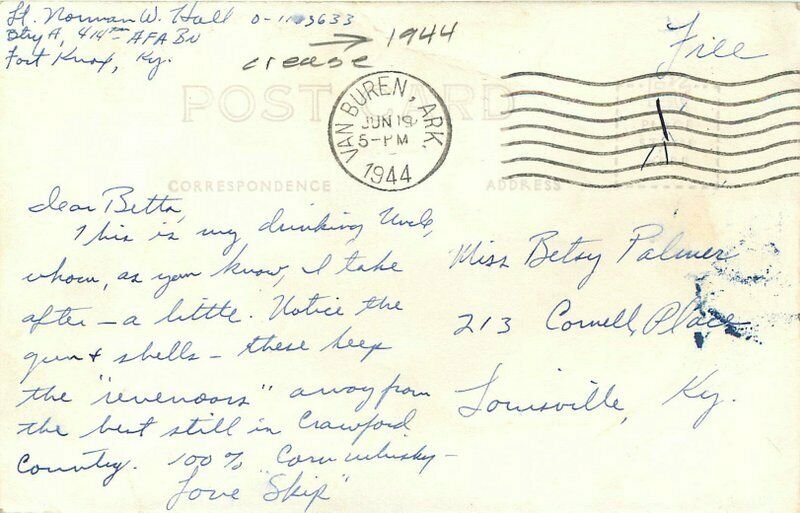 Lt. Norman W. Hall O-1113633
Btry A, 414th AFA Bn
Fort Knox, Ky.
→ 1944
crease
Free
POST CARD
VAN BUREN, ARK.
JUN 19
5-PM
1944
CORRESPONDENCE
ADDRESS
Dear Betts,
This is my drinking Uncle,
whom, as you know, I take
after – a little. Notice the
gun & shells – these keep
the "revenoors" away from
the best still in Crawford
County. 100% Corn whisky –
Love "Skip"
Miss Betsy Palmer
213 Cornell Place
Louisville, Ky.